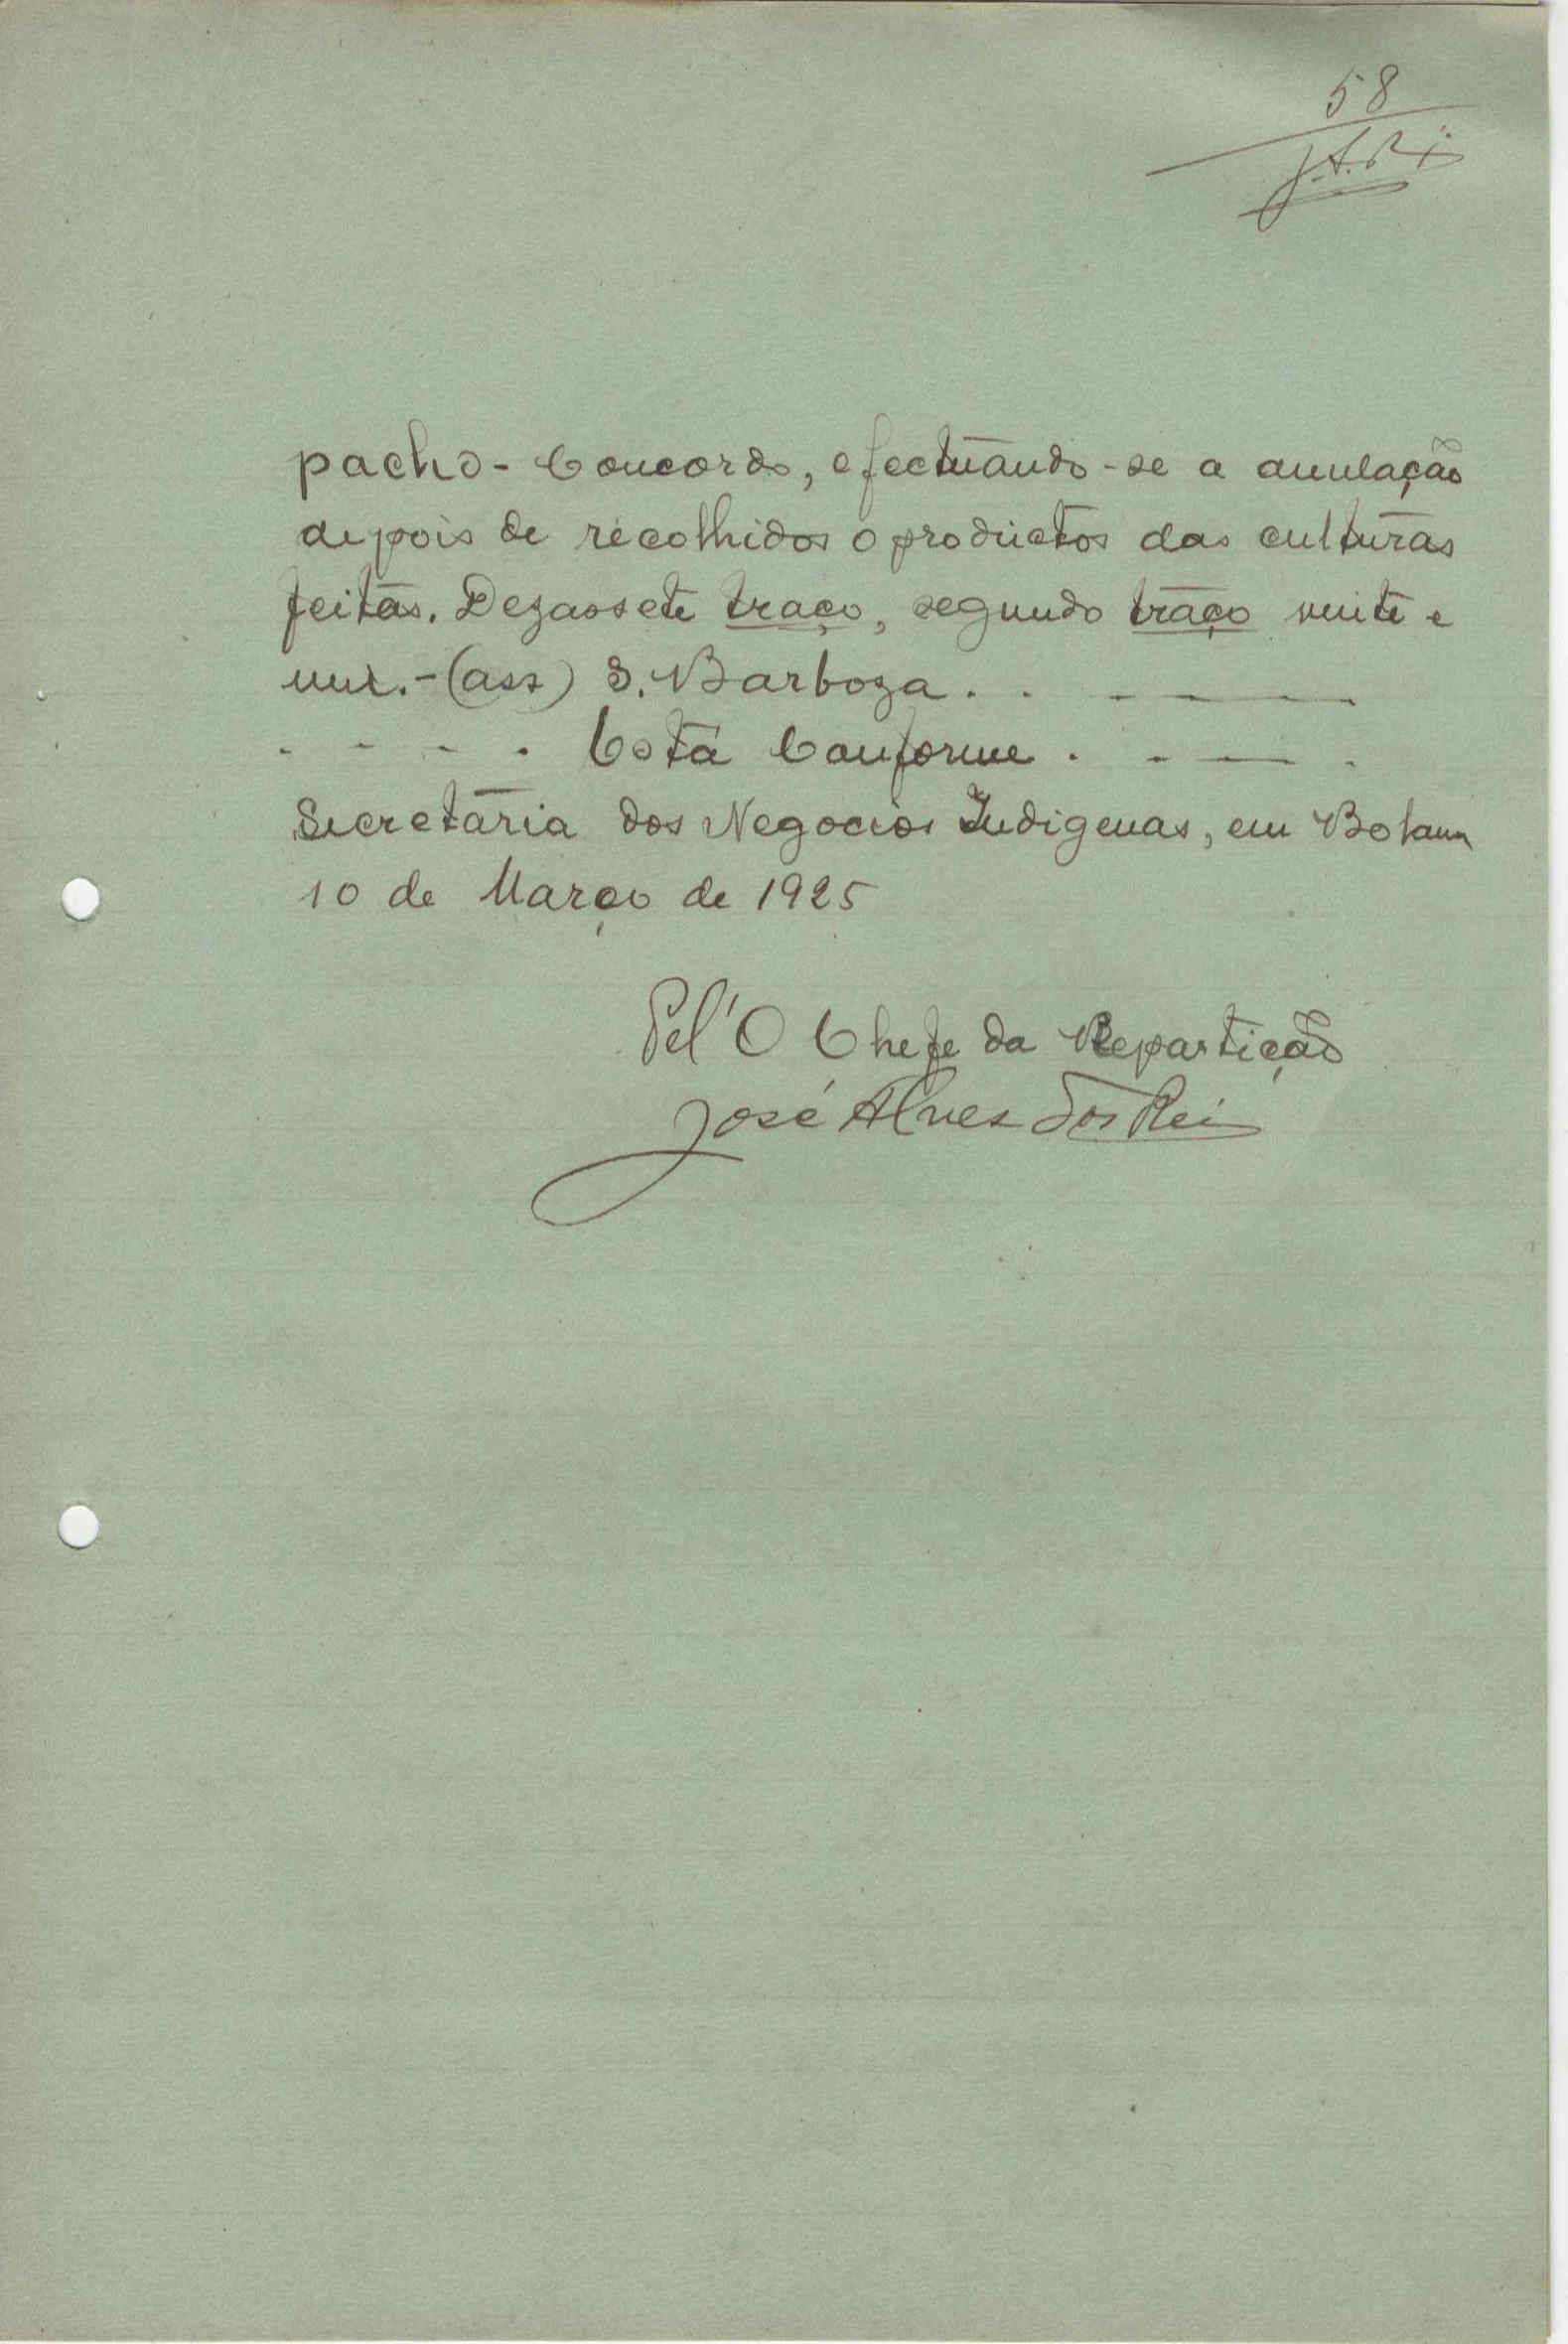 58
J. A. Reis
pacho - Concordo, efectuando-se a anulação
depois de recolhidos o productos das culturas
feitas. Dezassete traço, segundo traço vinte e
um. - (ass) S. Barboza. . - — — .
. - - . Está Conforme . - — .
Secretaria dos Negocios Indigenas, em Bolama
10 de Março de 1925
Pel'O Chefe da Repartição
José Alves dos Reis